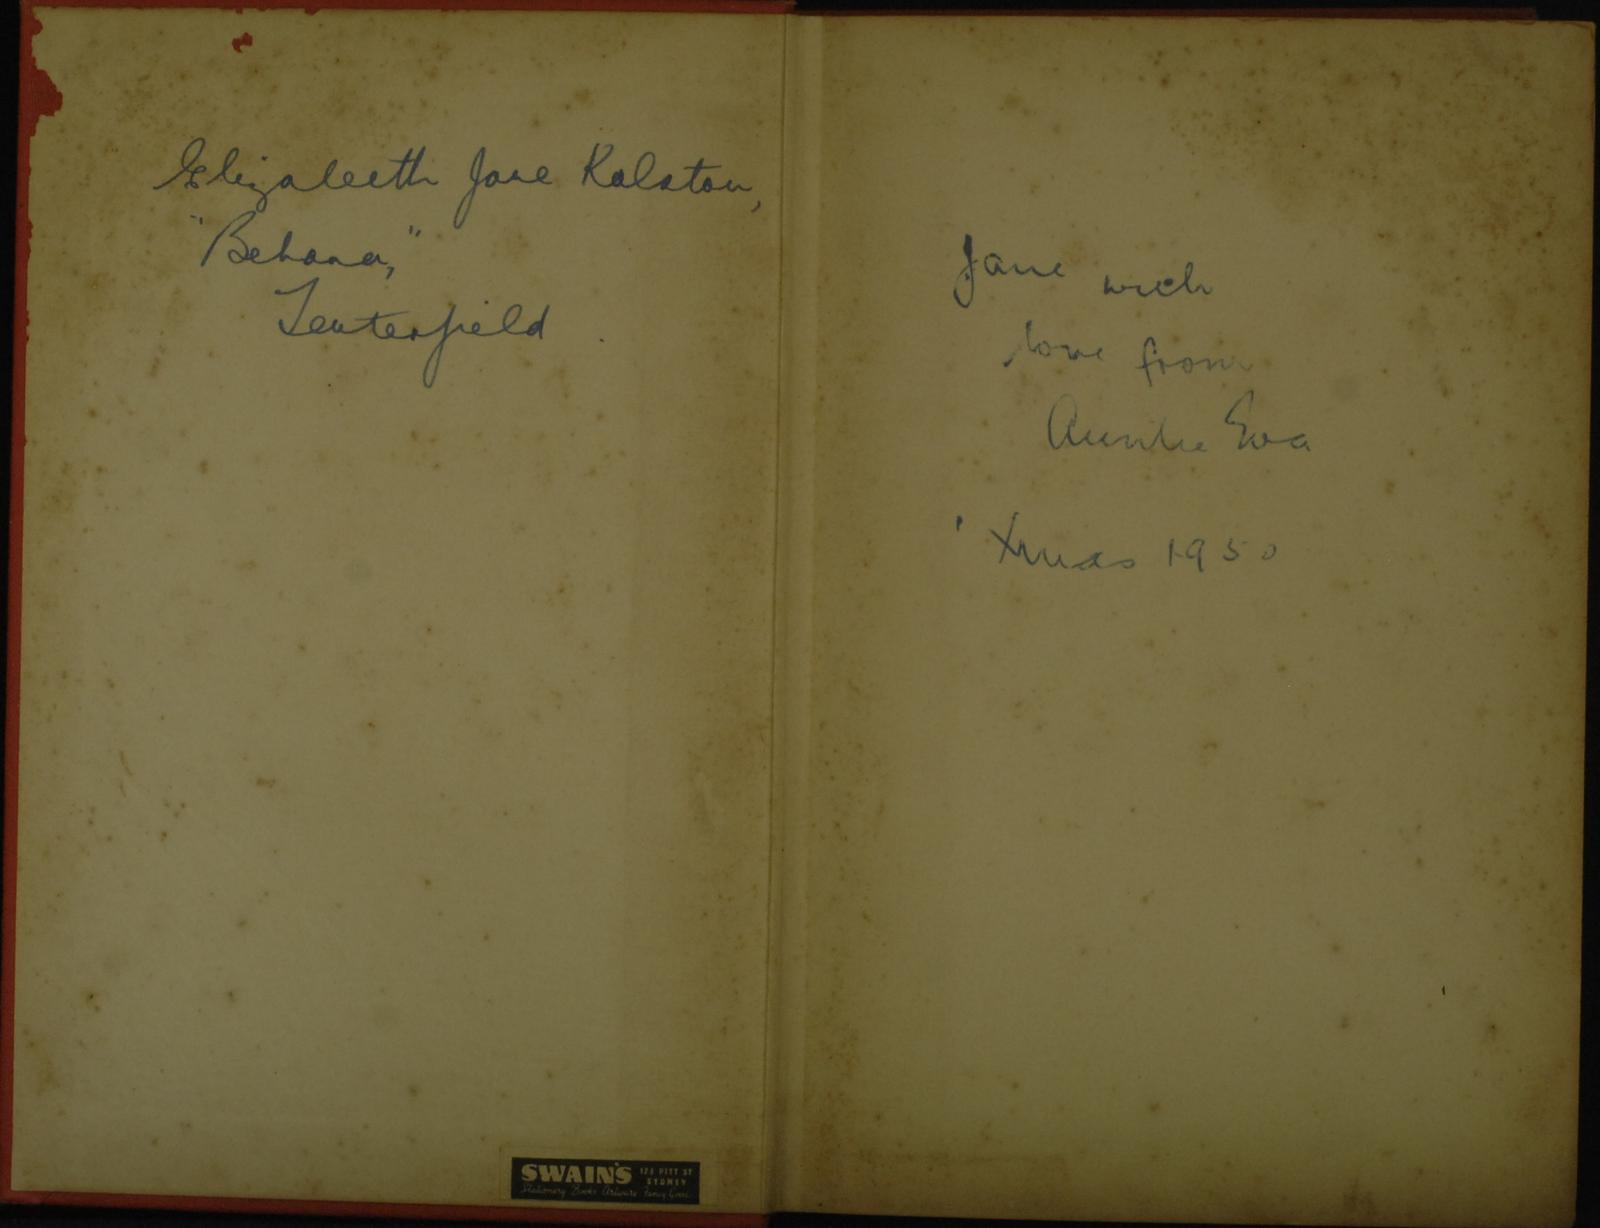 Elizabeth Jane Ralston,
"Behana,"
Tenterfield.
Jane with
love from
Auntie Eva
'Xmas 1950
SWAIN'S 123 PITT ST
SYDNEY
Stationery Books Artware Fancy Goods